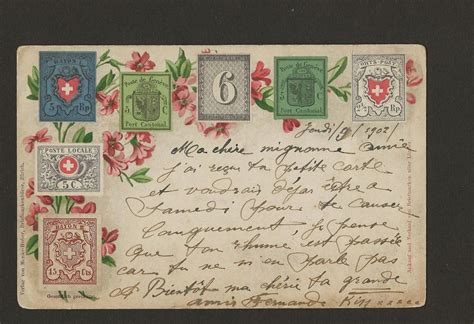 RAYON I
5 Rp
Poste de Genève
Port Cantonal
6
Poste de Genève
Port Cantonal
ORTS POST
2½ Rp
POSTE LOCALE
5 C
RAYON
15 Cts
Jeudi / 9 / 1902
Ma chère mignonne amie
j'ai reçu ta petite carte
et voudrais déjas être à
samedi pour te causer
longuement je pense
que ton rhume est passée
car tu ne m'en parle pas
A Bientôt ma chérie ta grande
amie Fernande